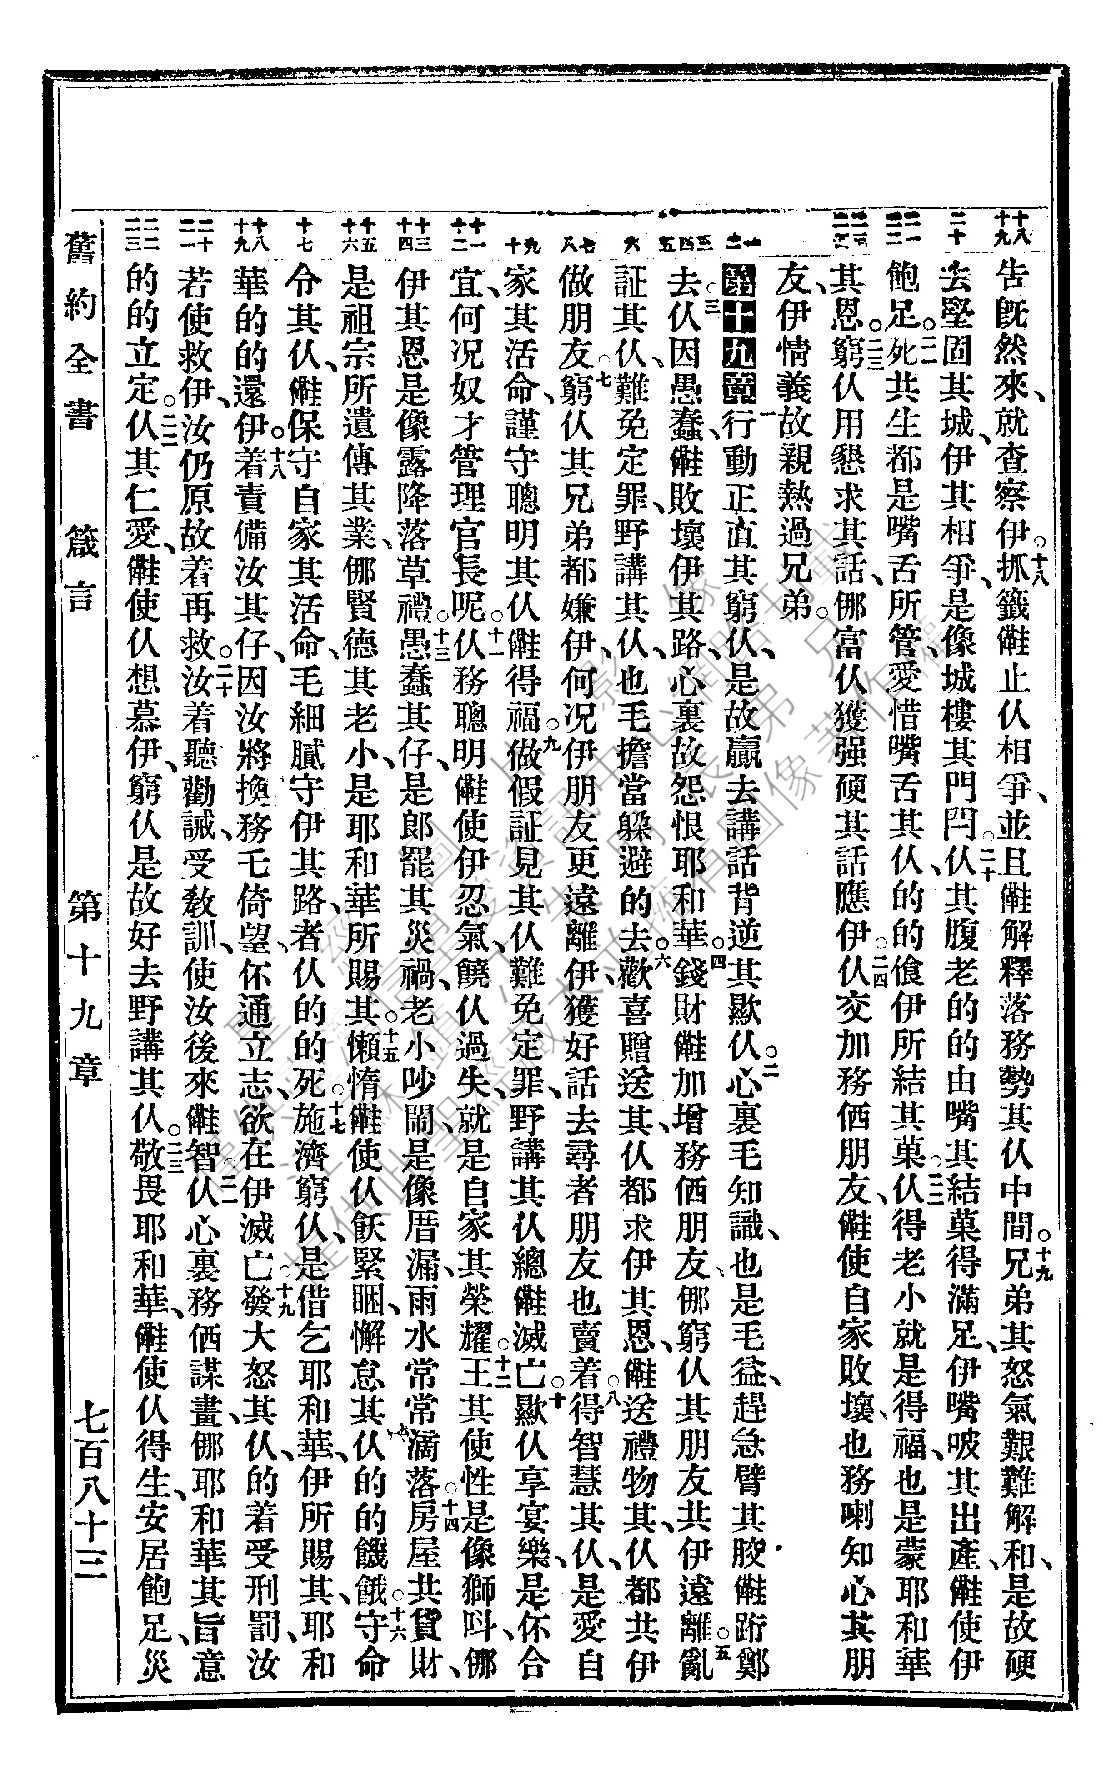 十八 十九 告旣然來、就查察伊。十八抓籤㑚止仈相爭、並且㑚解釋落務勢其仈中間。十九兄弟其怒氣艱難解和、是故硬
二十 去堅固其城、伊其相爭、是像城樓其門閂。二十仈其腹老的的由嘴其結菓得滿足、伊嘴唆其出產、㑚使伊
二一 二二 飽足。二一死共生都是嘴舌所管、愛惜嘴舌其仈、的的食伊所結其菓。二二仈得老小就是得福、也是蒙耶和華
二三 二四 其恩。二三窮仈用懇求其話、挪富仈獲强硬其話應伊。二四仈交加務㑚朋友、㑚使自家敗壞、也務喇知心其朋
友、伊情義故親熱過兄弟。
一 二 第十九章 一行動正直其窮仈、是故贏去講話背逆其歞仈。二心裏毛知識、也是毛益、趕急臂其骹㑚跲鄭
三 四 五 去。三仈因愚蠢、㑚敗壞伊其路、心裏故怨恨耶和華。四錢財㑚加增務㑚朋友、挪窮仈其朋友共伊遠離。五亂
六 証其仈、難免定罪、野講其仈、也毛擔當躱避的去。六歡喜贈送其仈都求伊其恩、㑚送禮物其仈、都共伊
七 八 做朋友。七窮仈其兄弟都嫌伊、何况伊朋友更遠離伊、獲好話去尋者朋友也賣着。八得智慧其仈、是愛自
九 十 家其活命、謹守聰明其仈㑚得福。九做假証見其仈、難免定罪、野講其仈總㑚滅亡。十歞仈享宴樂、是伓合
十一 十二 宜、何况奴才管理官長呢。十一仈務聰明、㑚使伊忍氣、饒仈過失、就是自家其榮耀。十二王其使性、是像獅呌、挪
十三 十四 伊其恩、是像露降落草禮。十三愚蠢其仔、是郎罷其災禍、老小吵鬧、是像厝漏、雨水常常滴落。十四房屋共貨財、
十五 十六 是祖宗所遺傳其業、挪賢德其老小、是耶和華所賜其。十五懶惰㑚使仈飫緊睏、懈怠其仈的的饑餓。十六守命
十七 令其仈、㑚保守自家其活命、毛細膩守伊其路者仈的的死。十七施濟窮仈、是借乞耶和華、伊所賜其、耶和
十八 十九 華的的還伊。十八着責備汝其仔、因汝將換務乇倚望、伓通立志、欲在伊滅亡。十九發大怒其仈、的着受刑罰、汝
二十 二一 若使救伊、汝仍原故着再救。二十汝着聽勸誡、受敎訓、使汝後來㑚智。二一仈心裏務㑚謀畫、挪耶和華其旨意
二二 二三 的的立定。二二仈其仁愛、㑚使仈想慕伊、窮仈是故好去野講其仈。二三敬畏耶和華、㑚使仈得生、安居飽足、災
舊約全書 箴言 第十九章 七百八十三